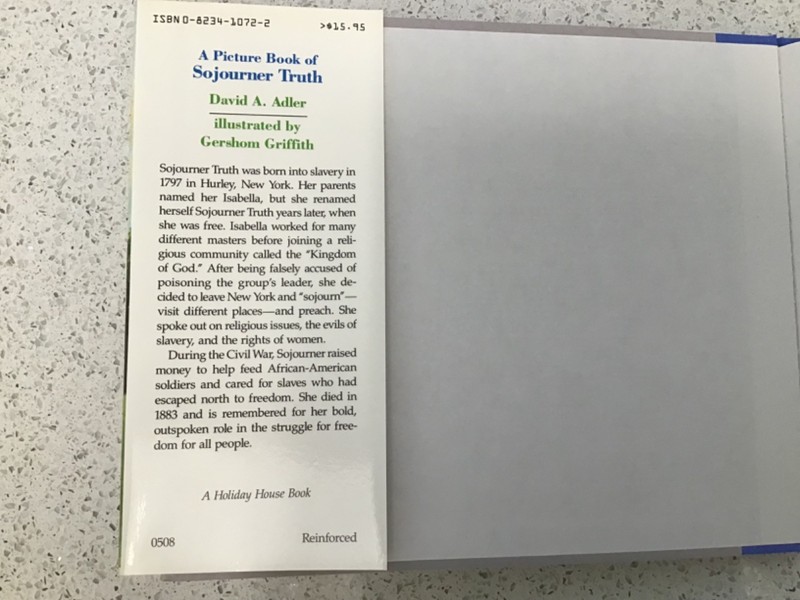 ISBN 0-8234-1072-2 >$15.95
A Picture Book of
Sojourner Truth
David A. Adler
illustrated by
Gershom Griffith
Sojourner Truth was born into slavery in
1797 in Hurley, New York. Her parents
named her Isabella, but she renamed
herself Sojourner Truth years later, when
she was free. Isabella worked for many
different masters before joining a reli-
gious community called the “Kingdom
of God.” After being falsely accused of
poisoning the group’s leader, she de-
cided to leave New York and “sojourn”—
visit different places—and preach. She
spoke out on religious issues, the evils of
slavery, and the rights of women.
During the Civil War, Sojourner raised
money to help feed African-American
soldiers and cared for slaves who had
escaped north to freedom. She died in
1883 and is remembered for her bold,
outspoken role in the struggle for free-
dom for all people.
A Holiday House Book
0508 Reinforced